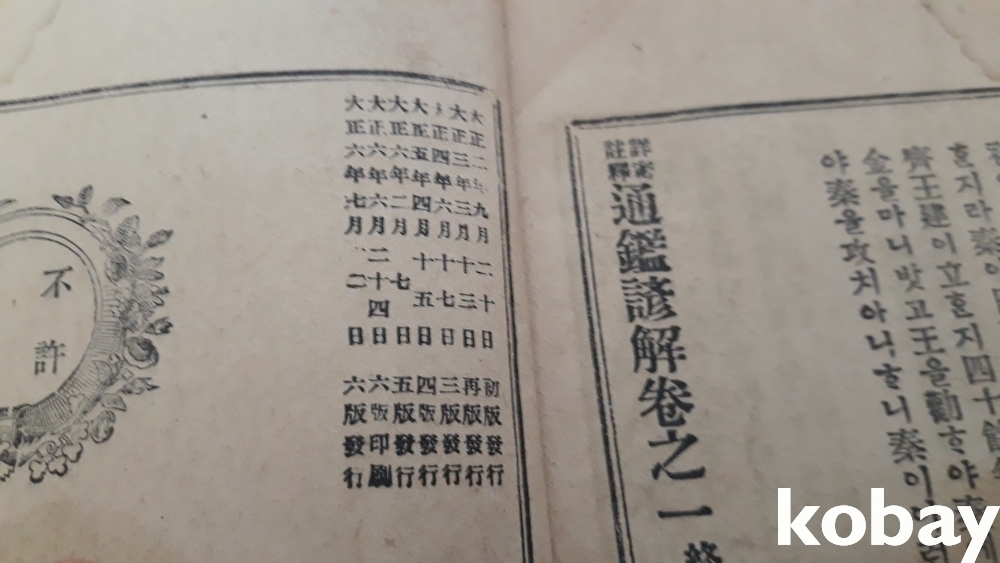 齊王建이立ᄒᆞᆫ지四十餘
金을마니밧고王을勸ᄒᆞ야秦
야秦을攻치아니ᄒᆞ니秦이
詳密
註釋
通鑑諺解卷之一終
大正二年九月二十日 初版發行
大正三年三月十三日 再版發行
正四年六月十七日 三版發行
大正五年四月十五日 四版發行
大正六年二月七日 五版發行
大正六年六月二十四日 六版印刷
大正六年七月二日 六版發行
不許
kobay